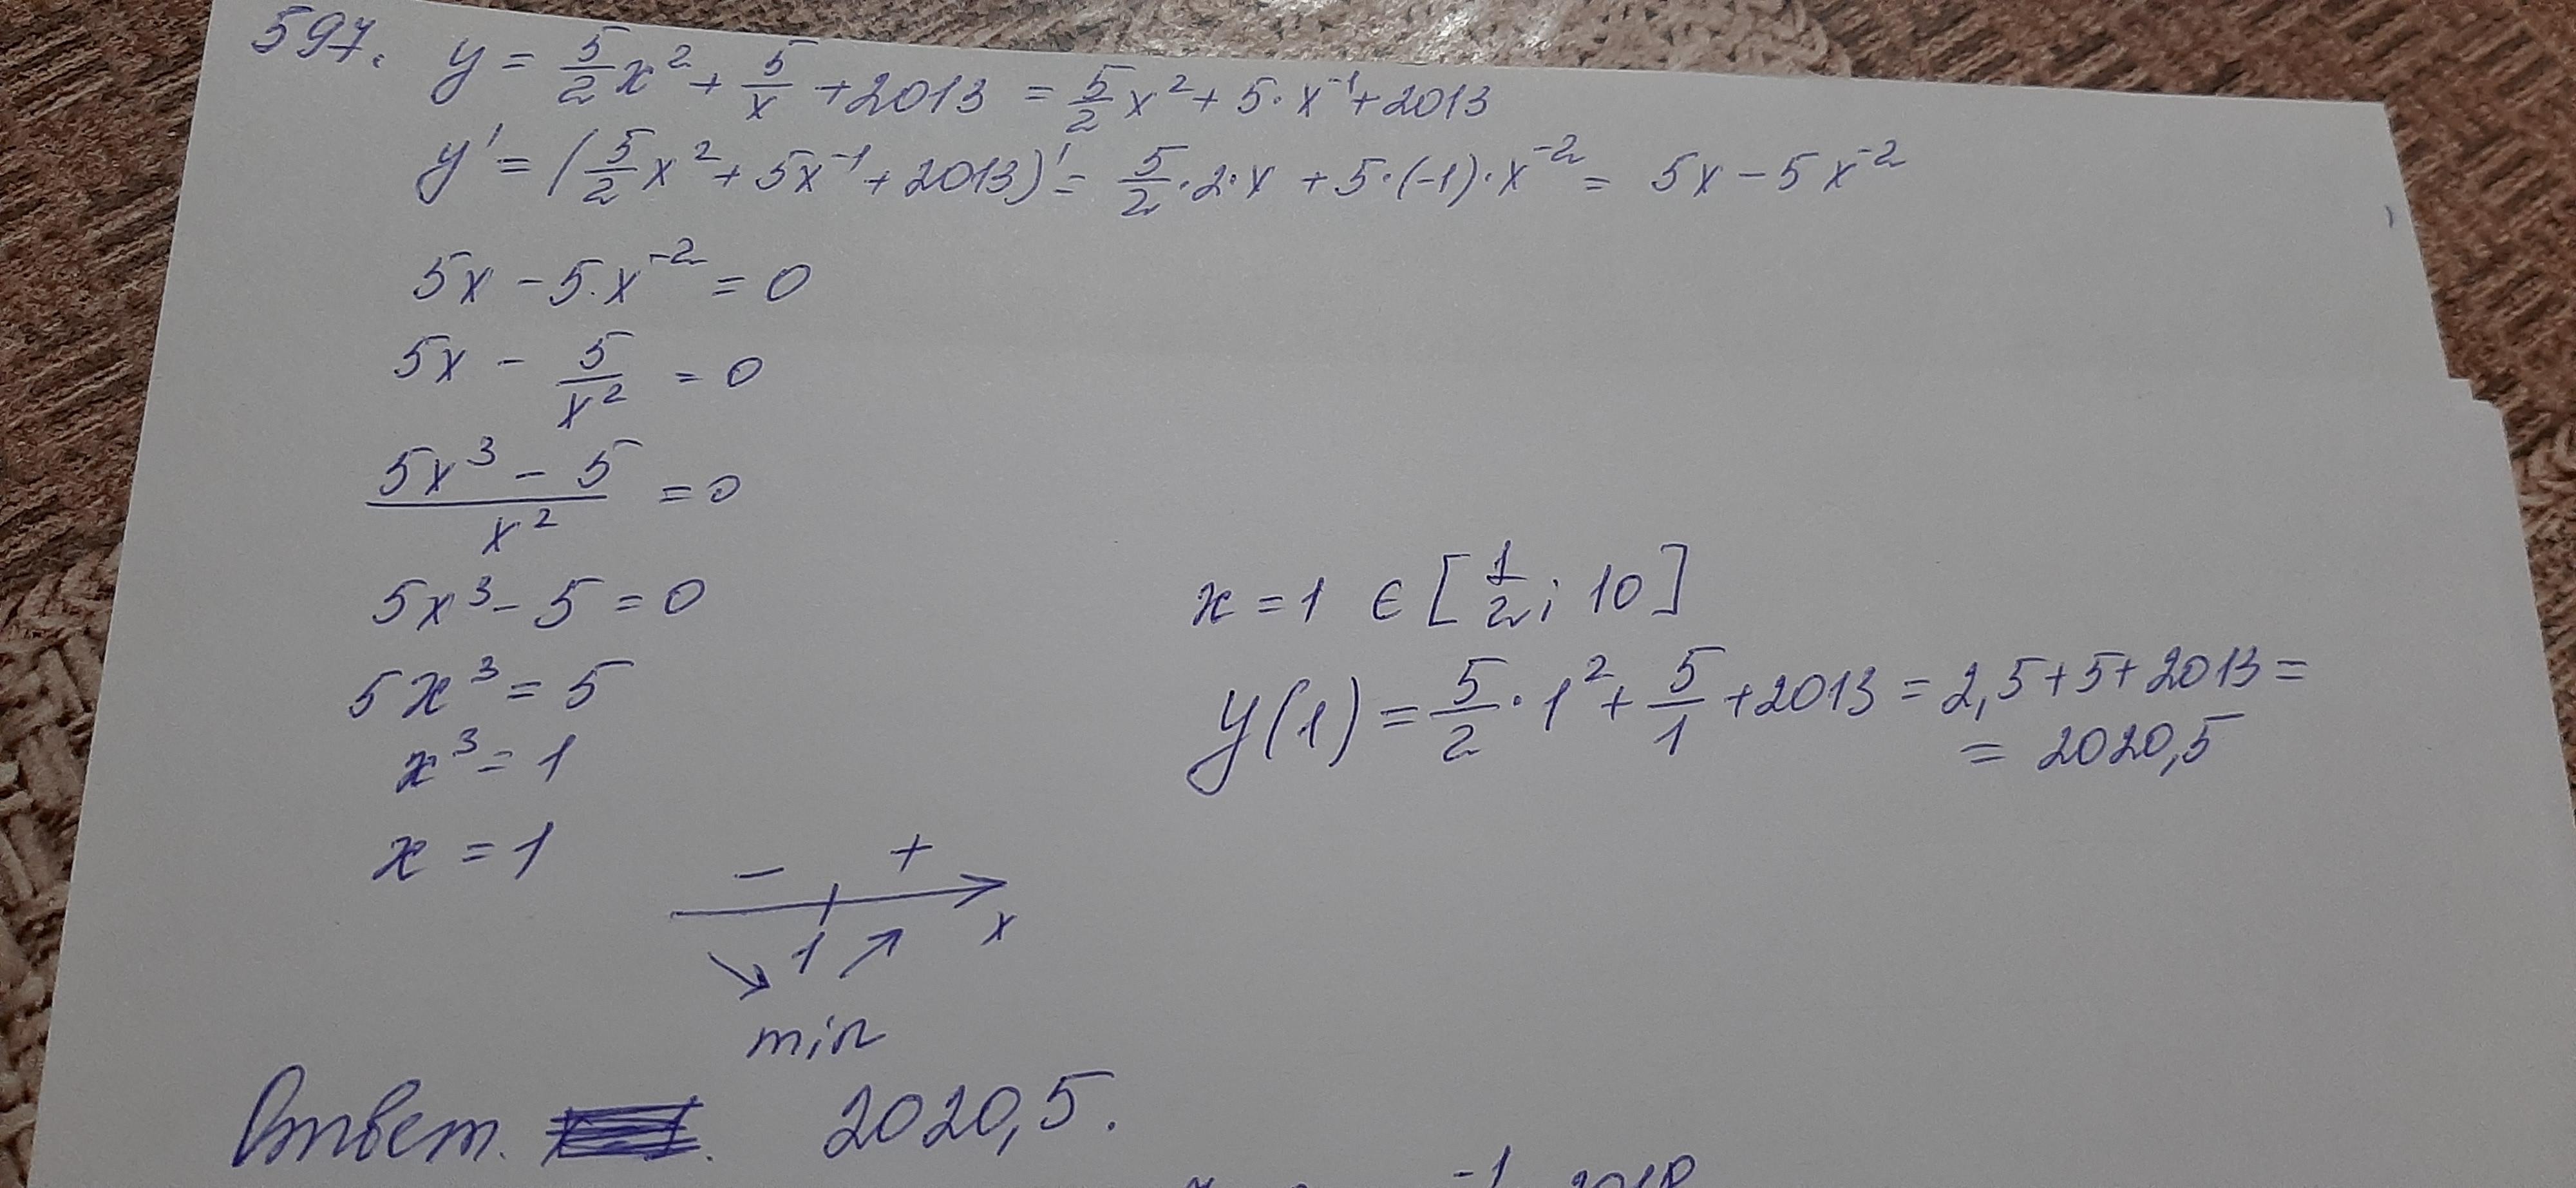 597. y = 5/2 x² + 5/x + 2013 = 5/2 x² + 5·x⁻¹ + 2013
y' = (5/2 x² + 5x⁻¹ + 2013)' = 5/2 · 2 · x + 5·(-1)·x⁻² = 5x - 5x⁻²
5x - 5·x⁻² = 0
5x - 5/x² = 0
(5x³ - 5)/x² = 0
5x³ - 5 = 0
5x³ = 5
x³ = 1
x = 1
- +
1 x
min
x = 1 ∈ [1/2; 10]
y(1) = 5/2 · 1² + 5/1 + 2013 = 2,5 + 5 + 2013 =
= 2020,5
Ответ. 2020,5.